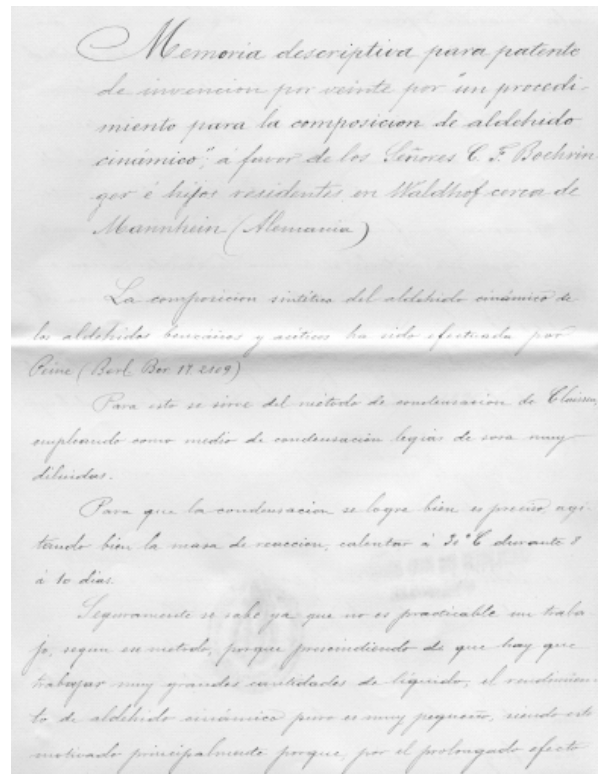 Memoria descriptiva para patente
de invencion por veinte por "un procedi-
miento para la composicion de aldehido
cinámico"; á favor de los Señores C. F. Boehrin
ger é hijos residentes en Waldhof cerca de
Mannhein (Alemania)
La composicion sintética del aldehido cinámico de
los aldehidos benzóicos y acéticos ha sido efectuada por
Peine (Berl. Ber. 17. 2109)
Para esto se sirve del método de condensación de Claissen,
empleando como medio de condensación legias de sosa muy
diluidas.
Para que la condensacion se logre bien es preciso, agi-
tando bien la masa de reaccion, calentar á 30° C durante 8
á 10 dias.
Seguramente se sabe ya que no es practicable un traba
jo, segun su metodo, porque prescindiendo de que hay que
trabajar muy grandes cantidades de liquido, el rendimien-
to de aldehido cinámico puro es muy pequeño, siendo esto
motivado principalmente porque, por el prolongado efecto